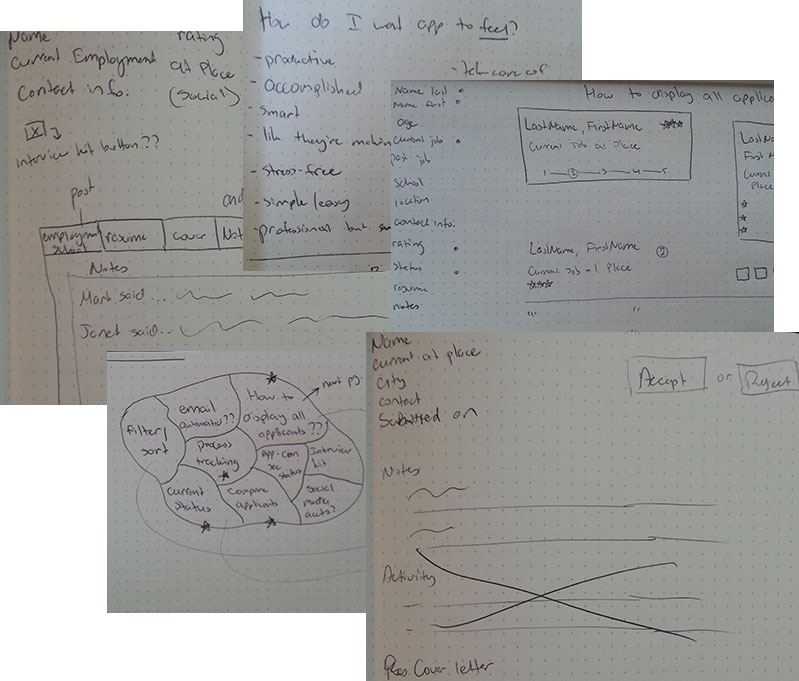 Name
rating
Current Employment
at Place
Contact info.
(Social)
X
interview kit button??
past
and
employment
school
resume
cover
Not
Notes
Mark said...
Janet said...
How do I want app to feel?
- productive
- accomplished
- smart
- like they're makin
- stress-free
- simple/easy
- professional but
- take care of
Name last
Name first
age
Current job
past job
School
location
contact info.
rating
status
resume
notes
How to display all applica
LastName, FirstName ***
Current Job at Place
1 — 2 — 3 — 4 — 5
LastNa
First N
Current
Place
LastName, FirstName 2
Current Job at Place
***
filter/
sort
email
automated??
How to
display all
applicants??
next pg.
process
tracking
App. can
see
status
Interview
kit
current
status
compare
applicants
social
media
accts?
Name
current at place
City
contact
Submitted on
Accept or Reject
Notes
Activity
Res. Cover. letter